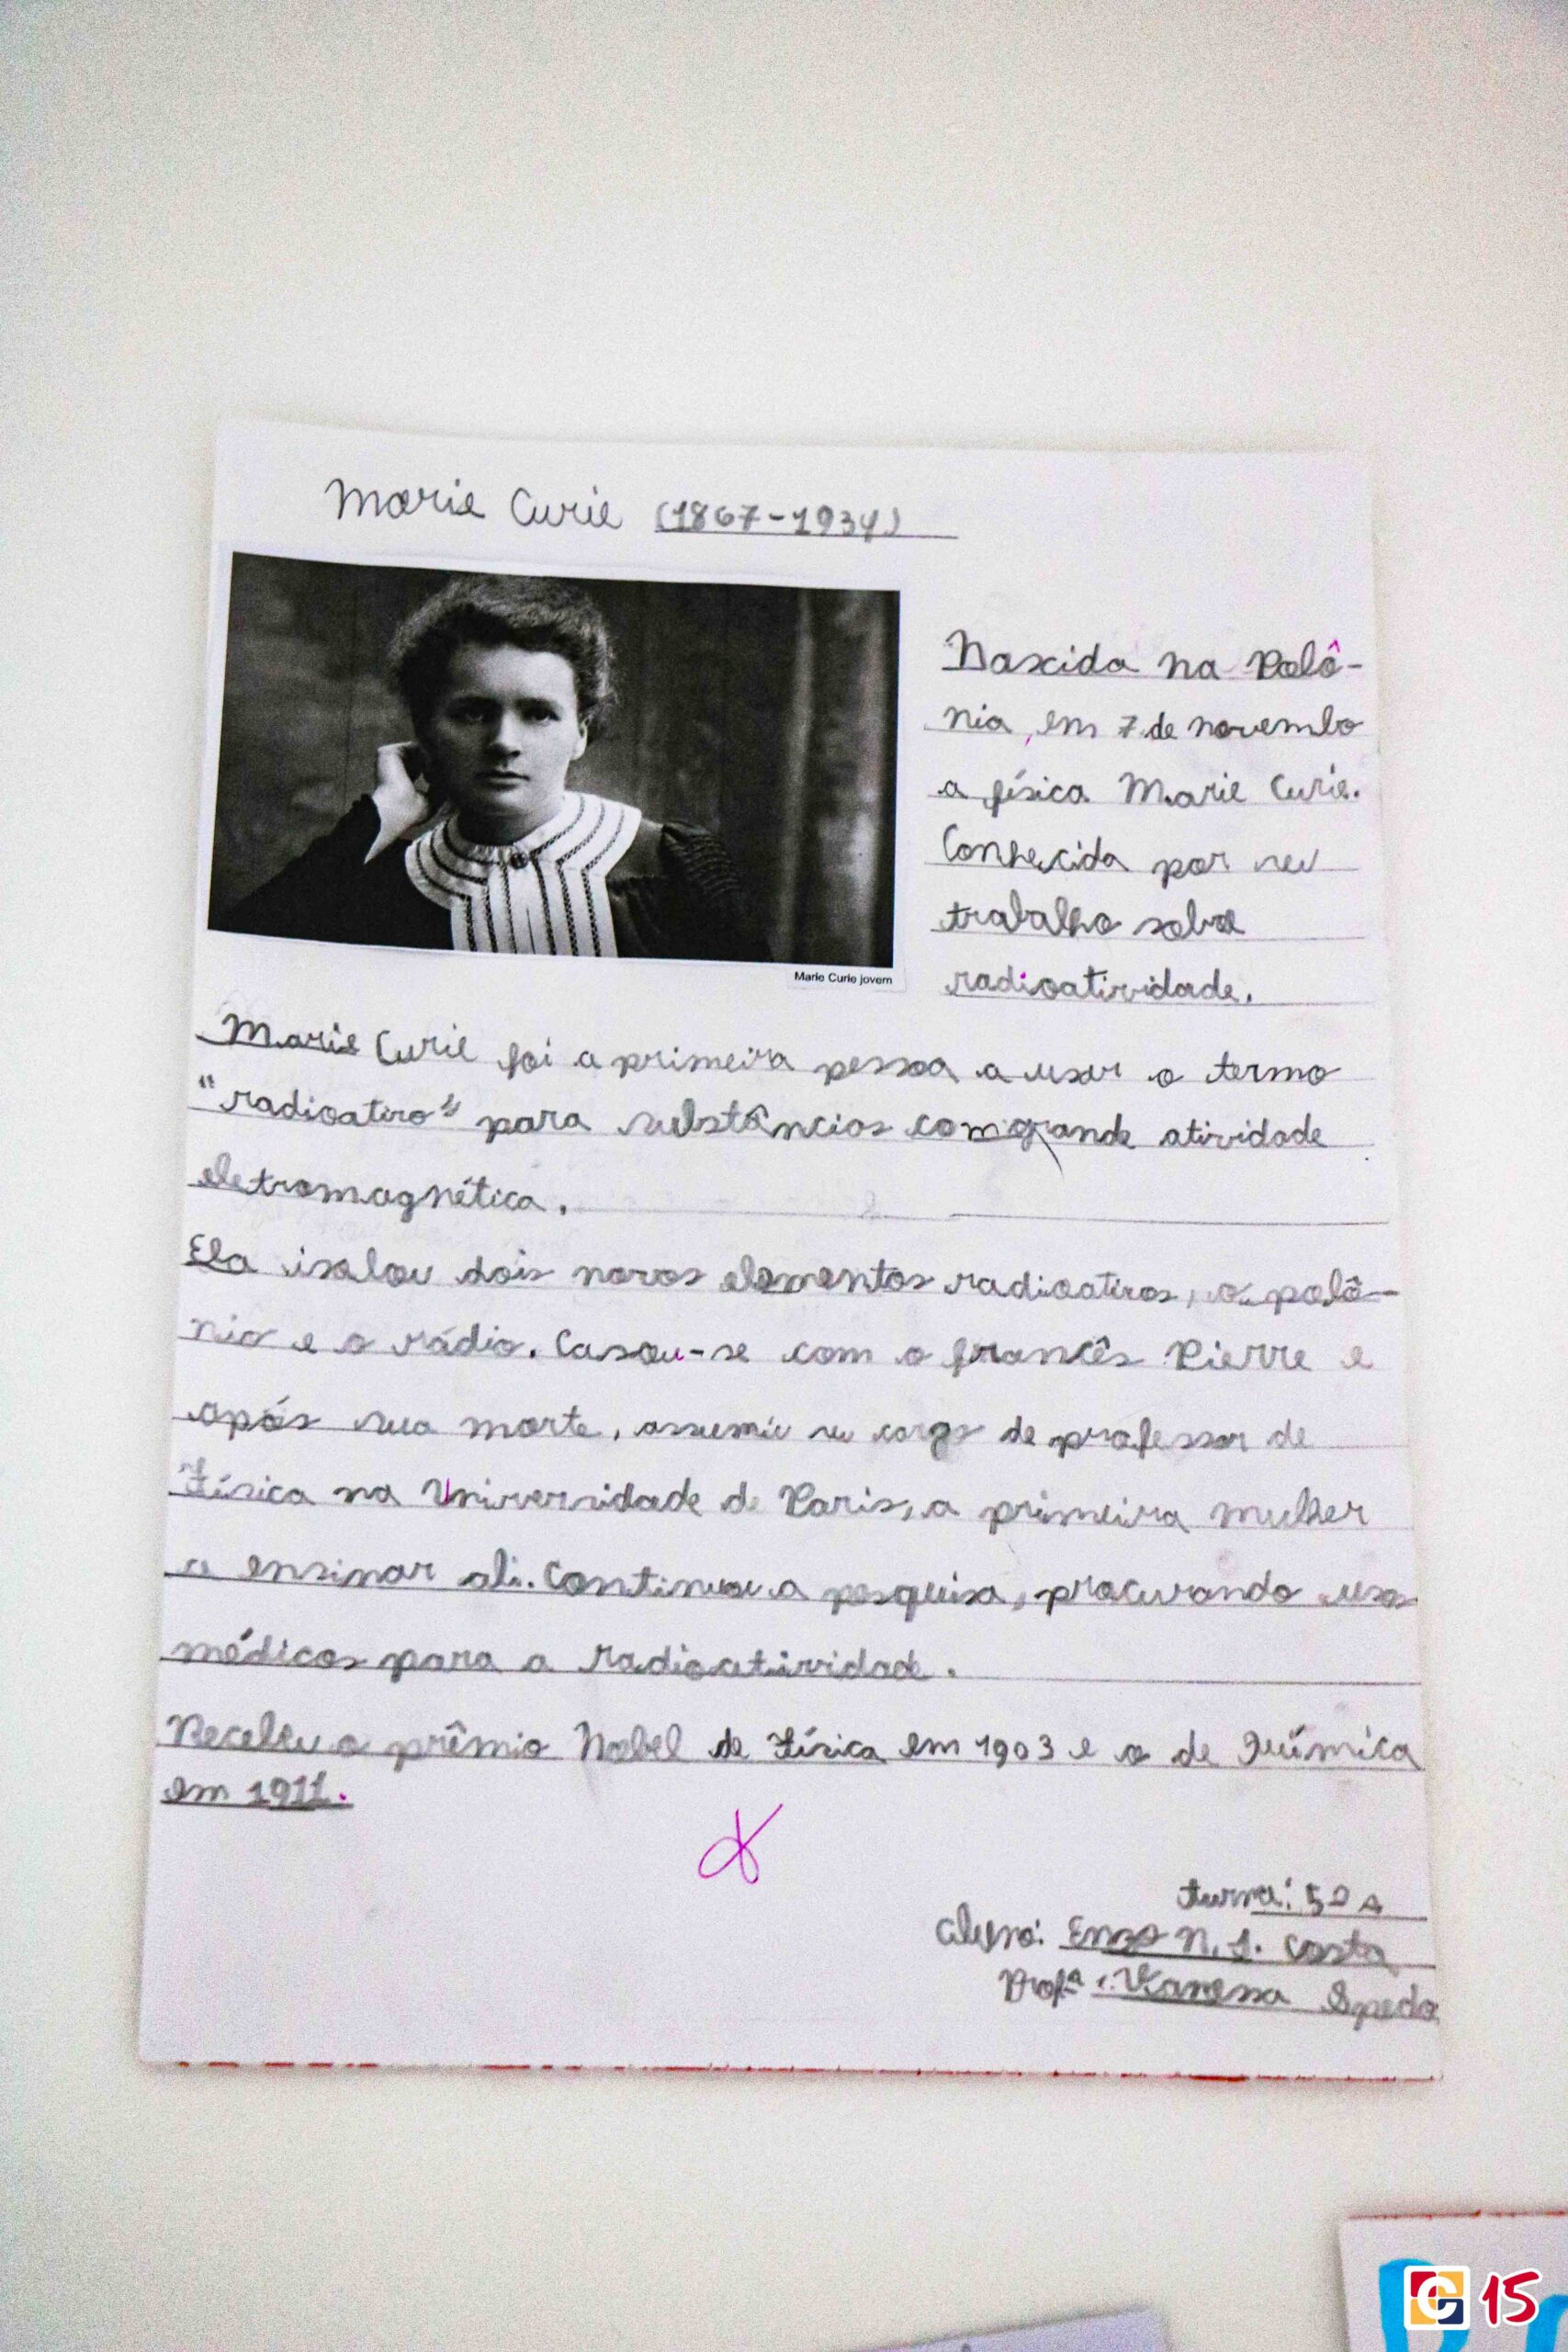 Marie Curie (1867-1934)
Nascida na Polô-
nia, em 7 de novembo
a física Marie Curie.
Conhecida por seu
trabalho sobre
radioatividade.
Marie Curie jovem
Marie Curie foi a primeira pessoa a usar o termo
"radioativo" para substâncias com grande atividade
eletromagnética.
Ela isolou dois novos elementos radioativos, o polô-
nio e o rádio. Casou-se com o francês Pierre e
após sua morte, assumiu seu cargo de professor de
Física na Universidade de Paris, a primeira mulher
a ensinar ali. Continuou a pesquisa, procurando usos
médicos para a radioatividade.
Recebeu o prêmio Nobel de Física em 1903 e o de Química
em 1911.
turma: 5º A
aluno: Enzo N. J. Costa
Profª: Vanessa Spedo
G 15